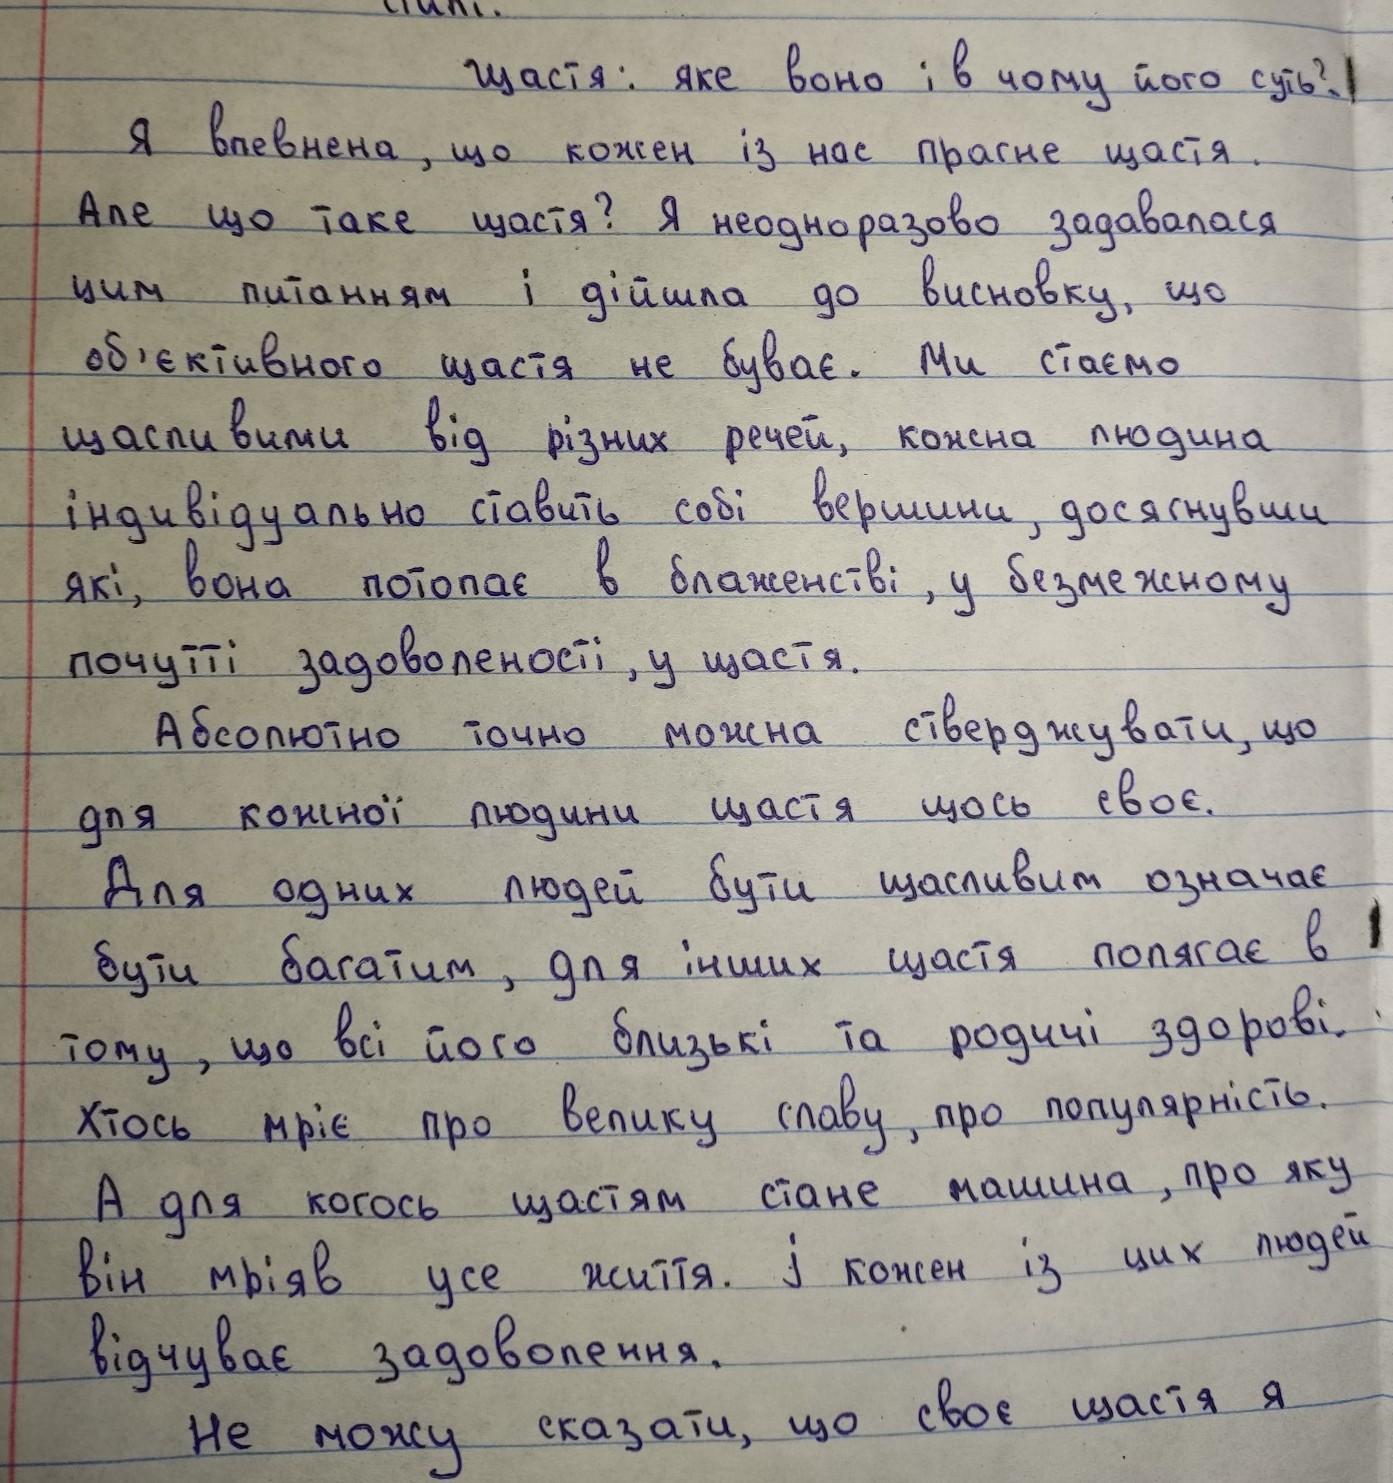 стилі.
Щастя: яке воно і в чому його суть?
Я впевнена, що кожен із нас прагне щастя.
Але що таке щастя? Я неодноразово задавалася
цим питанням і дійшла до висновку, що
об'єктивного щастя не буває. Ми стаємо
щасливими від різних речей, кожна людина
індивідуально ставить собі вершини, досягнувши
які, вона потопає в блаженстві, у безмежному
почутті задоволеності, у щастя.
Абсолютно точно можна стверджувати, що
для кожної людини щастя щось своє.
Для одних людей бути щасливим означає
бути багатим, для інших щастя полягає в
тому, що всі його близькі та родичі здорові.
Хтось мріє про велику славу, про популярність.
А для когось щастям стане машина, про яку
він мріяв усе життя. І кожен із цих людей
відчуває задоволення.
Не можу сказати, що своє щастя я